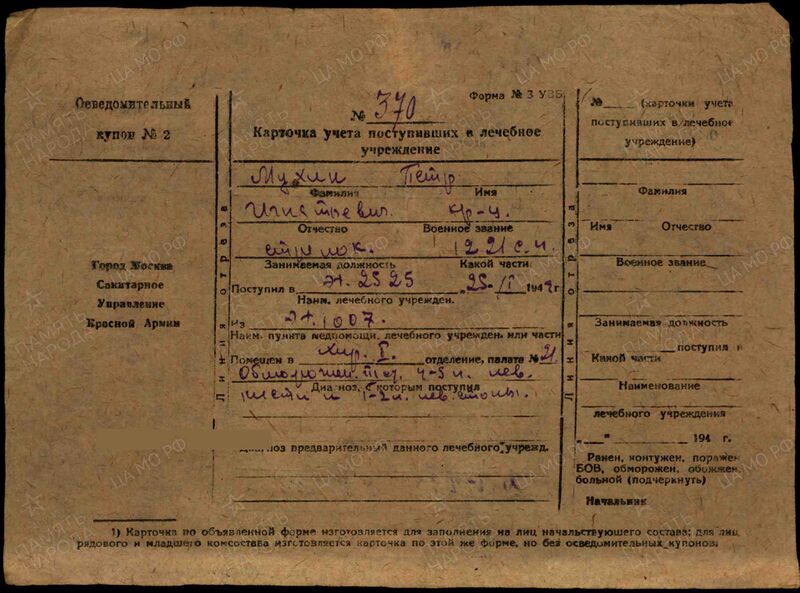 Осведомительный
купон № 2
Город Москва
Санитарное
Управление
Красной Армии
Форма № 3 УВБ
№ 370
Карточка учета поступивших в лечебное
учреждение
Мухин Петр
Фамилия Имя
Игнатьевич. кр-ц.
Отчество Военное звание
стрелок. 1221 с.п.
Занимаемая должность Какой части
Поступил в эг. 2525 „25-
194 г.
Наим. лечебного учрежден.
Из эг. 1007.
Наим. пункта медпомощи, лечебного учрежден. или части
Помещен в хир. I. отделение, палата № 21
4-5 п. лев.
Диагноз, с которым поступил
кисти и 1-2 п. лев. стопы.
ноз предварительный данного лечебного учрежд.
Линия отреза
№ (карточки учета
поступивших в лечебное
учреждение)
Фамилия
Имя Отчество
Военное звание
Занимаемая должность
поступил в
Какой части
Наименование
лечебного учреждения
„ " 194 г.
Ранен, контужен, поражен
БОВ, обморожен, обожжен
больной (подчеркнуть)
Начальник
Линия отреза
1) Карточка по объявленной форме изготовляется для заполнения на лиц начальствующего состава; для лиц
рядового и младшего комсостава изготовляется карточка по этой же форме, но без осведомительных купонов.
ЦА МО РФ
ПАМЯТЬ
НАРОДА